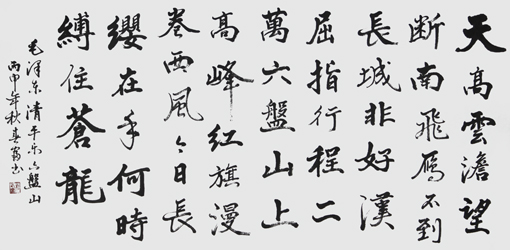 天高雲澹望
断南飛雁不到
長城非好漢
屈指行程二
萬六盤山上
高峰紅旗漫
卷西風今日長
纓在手何時
縛住蒼龍
毛澤东清平乐六盤山
丙申年秋